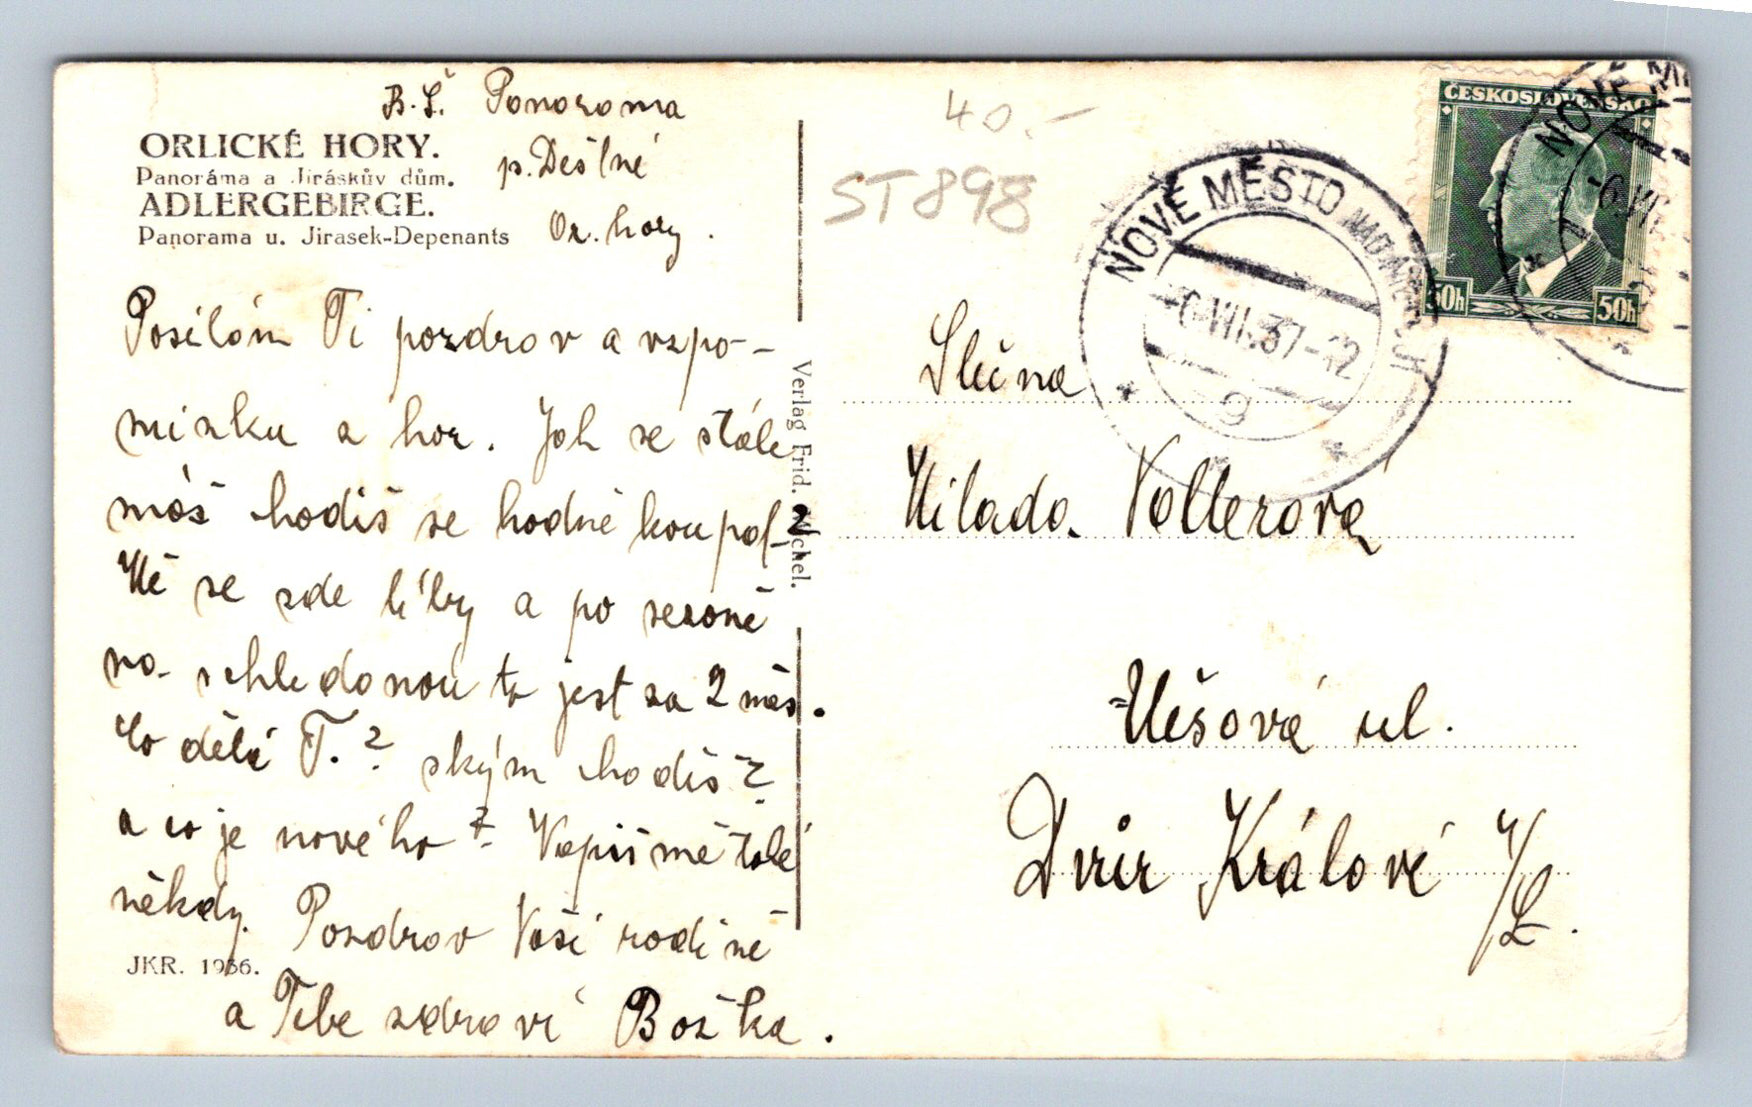 B.Š. Panorama
p. Deštné
Or. hory.
ORLICKÉ HORY.
Panoráma a Jiráskův dům.
ADLERGEBIRGE.
Panorama u. Jirasek-Depenants
Posílám Ti pozdrav a vzpo-
mínku z hor. Jak se stále
máš chodíš se hodně koupat?
Mě se zde líby a po sezoně
na schledanou to jest za 2 měs.
Co dělá T.? ským chodíš?
a co je nového? Napiš mě také
někdy. Pozdrav Vaší rodině
a Tebe zdraví Božka.
JKR. 1936.
Verlag Frid.
40.-
ST898
NOVÉ MĚSTO NAD METUJÍ
-6.VII.37-12
9
ČESKOSLOVENSKO
50h 50h
NOVÉ MĚ
-6.VII.
Slečna
Milada Vollerová
Mešova ul.
Dvůr Králové n/L.